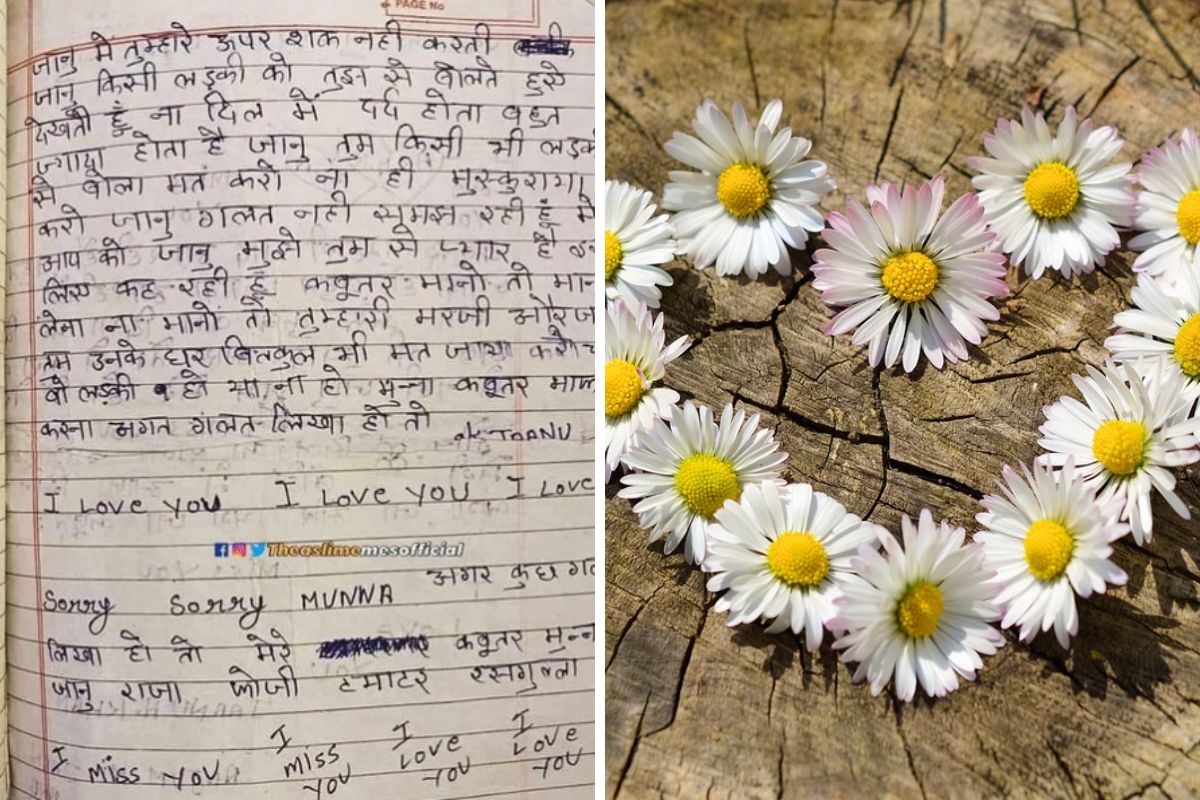 PAGE No
जानु में तुम्हारे ऊपर शक नही करती
जानु किसी लड़की को तुझ से बोलते हुऐ
देखती हूँ ना दिल में दर्द होता बहुत
ज्यादा होता है जानु तुम किसी भी लड़की
से बोला मत करो ना ही मुस्कुराया
करो जानु गलत नही समझ रही हूँ में
आप को जानु मुझे तुम से प्यार है इस
लिए कह रही हूँ कबूतर मानो तो मान
लेना ना मानो तो तुम्हारी मरजी और
तुम उनके घर बिलकुल भी मत जाया करो
वो लड़की हो या ना हो मुन्ना कबूतर माफ
करना अगत गलत लिखा हो तो
I LOVE YOU I LOVE YOU I LOVE
Theaslimemesofficial
अगर कुछ गल
Sorry Sorry MUNNA
लिखा हो तो मेरे कबूतर मुन्न
जानु राजा टमाटर रसगुल्ला
I miss YOU I miss YOU I LOVE YOU I LOVE YOU